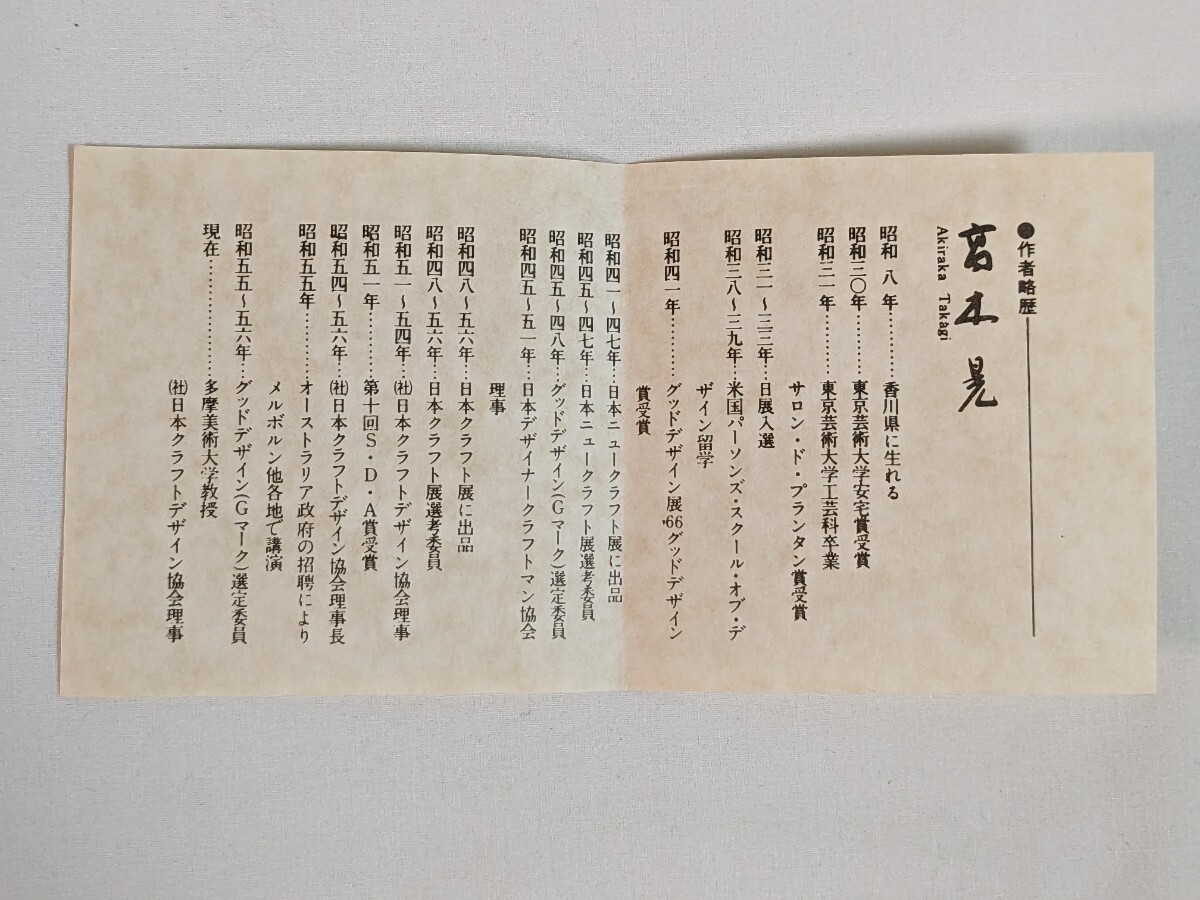 ●作者略歴
高木晃
Akiraka Takagi
昭和 八 年………香川県に生れる
昭和三〇年………東京芸術大学安宅賞受賞
昭和三一年………東京芸術大学工芸科卒業
サロン・ド・プランタン賞受賞
昭和三一〜三三年…日展入選
昭和三八〜三九年…米国パーソンズ・スクール・オブ・デ
ザイン留学
昭和四一年………グッドデザイン展'66グッドデザイン
賞受賞
昭和四一〜四七年…日本ニュークラフト展に出品
昭和四五〜四七年…日本ニュークラフト展選考委員
昭和四五〜四八年…グッドデザイン(Gマーク)選定委員
昭和四五〜五一年…日本デザイナークラフトマン協会
理事
昭和四八〜五六年…日本クラフト展に出品
昭和四八〜五六年…日本クラフト展選考委員
昭和五一〜五四年…㈳日本クラフトデザイン協会理事
昭和五一年………第十回S・D・A賞受賞
昭和五四〜五六年…㈳日本クラフトデザイン協会理事長
昭和五五年………オーストラリア政府の招聘により
メルボルン他各地で講演
昭和五五〜五六年…グッドデザイン(Gマーク)選定委員
現在………………多摩美術大学教授
㈳日本クラフトデザイン協会理事